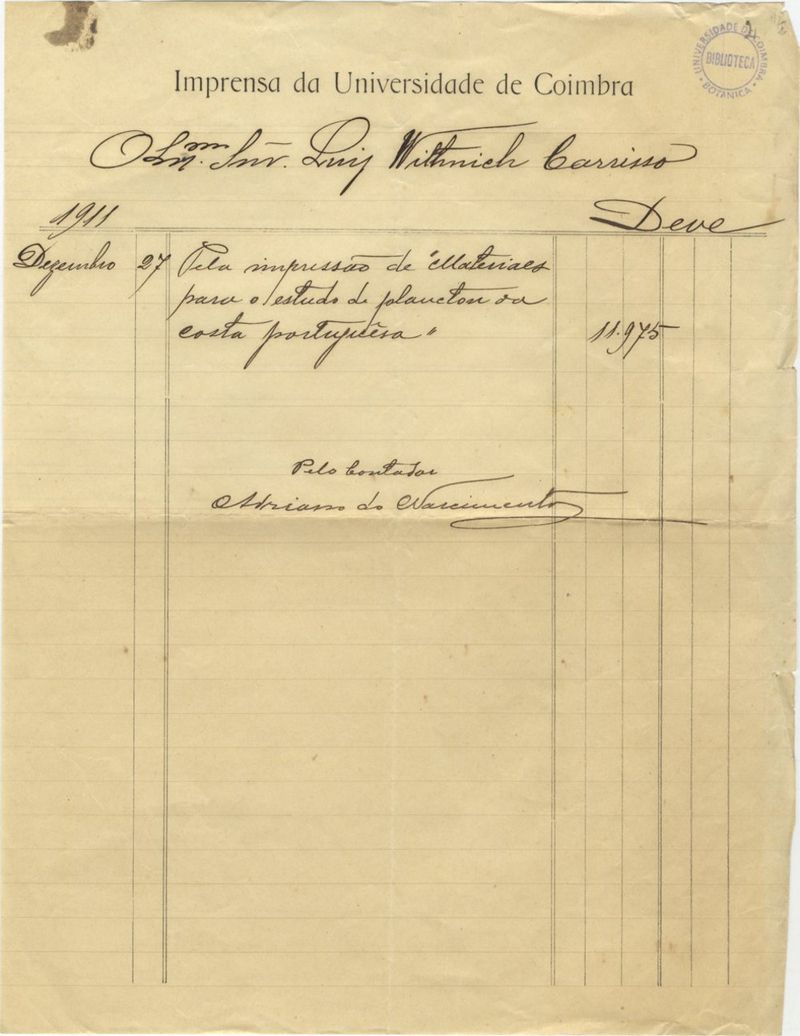 UNIVERSIDADE DE COIMBRA
BIBLIOTECA
BOTANICA
Imprensa da Universidade de Coimbra
O Exmo. Snr. Luiz Withnich Carrisso
1911 Deve
Dezembro 27 Pela impressão de "Materiaes
para o estudo de plancton da
costa portuguêsa" 11.975
Pelo Contador
Adriano do Nascimento